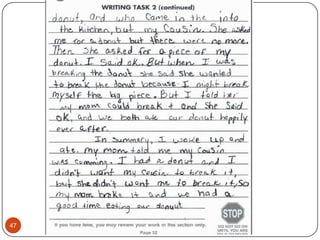 WRITING TASK 2 (continued)
donut, and who came in the into
the kitchen, but my Cousin. She asked
me for a donut but there were no more.
Then she asked for a piece of my
donut. I said ok. But when I was
breaking the donut she sad she wanted
to break the donut because I might break
myself the big piece. But I told her
my mom could break it and she said
ok, and we both ate our donut happily
ever after.
In Summary, I woke up and
ate. my mom told me my cousin
was comming. I had a donut and I
didn't want my cousin to break it,
but she didn't want me to break it, so
my mom broke it and we had a
good time eating our donuut
47
If you have time, you may review your work in this section only.
Page 52
STOP
DO NOT GO ON
UNTIL YOU ARE